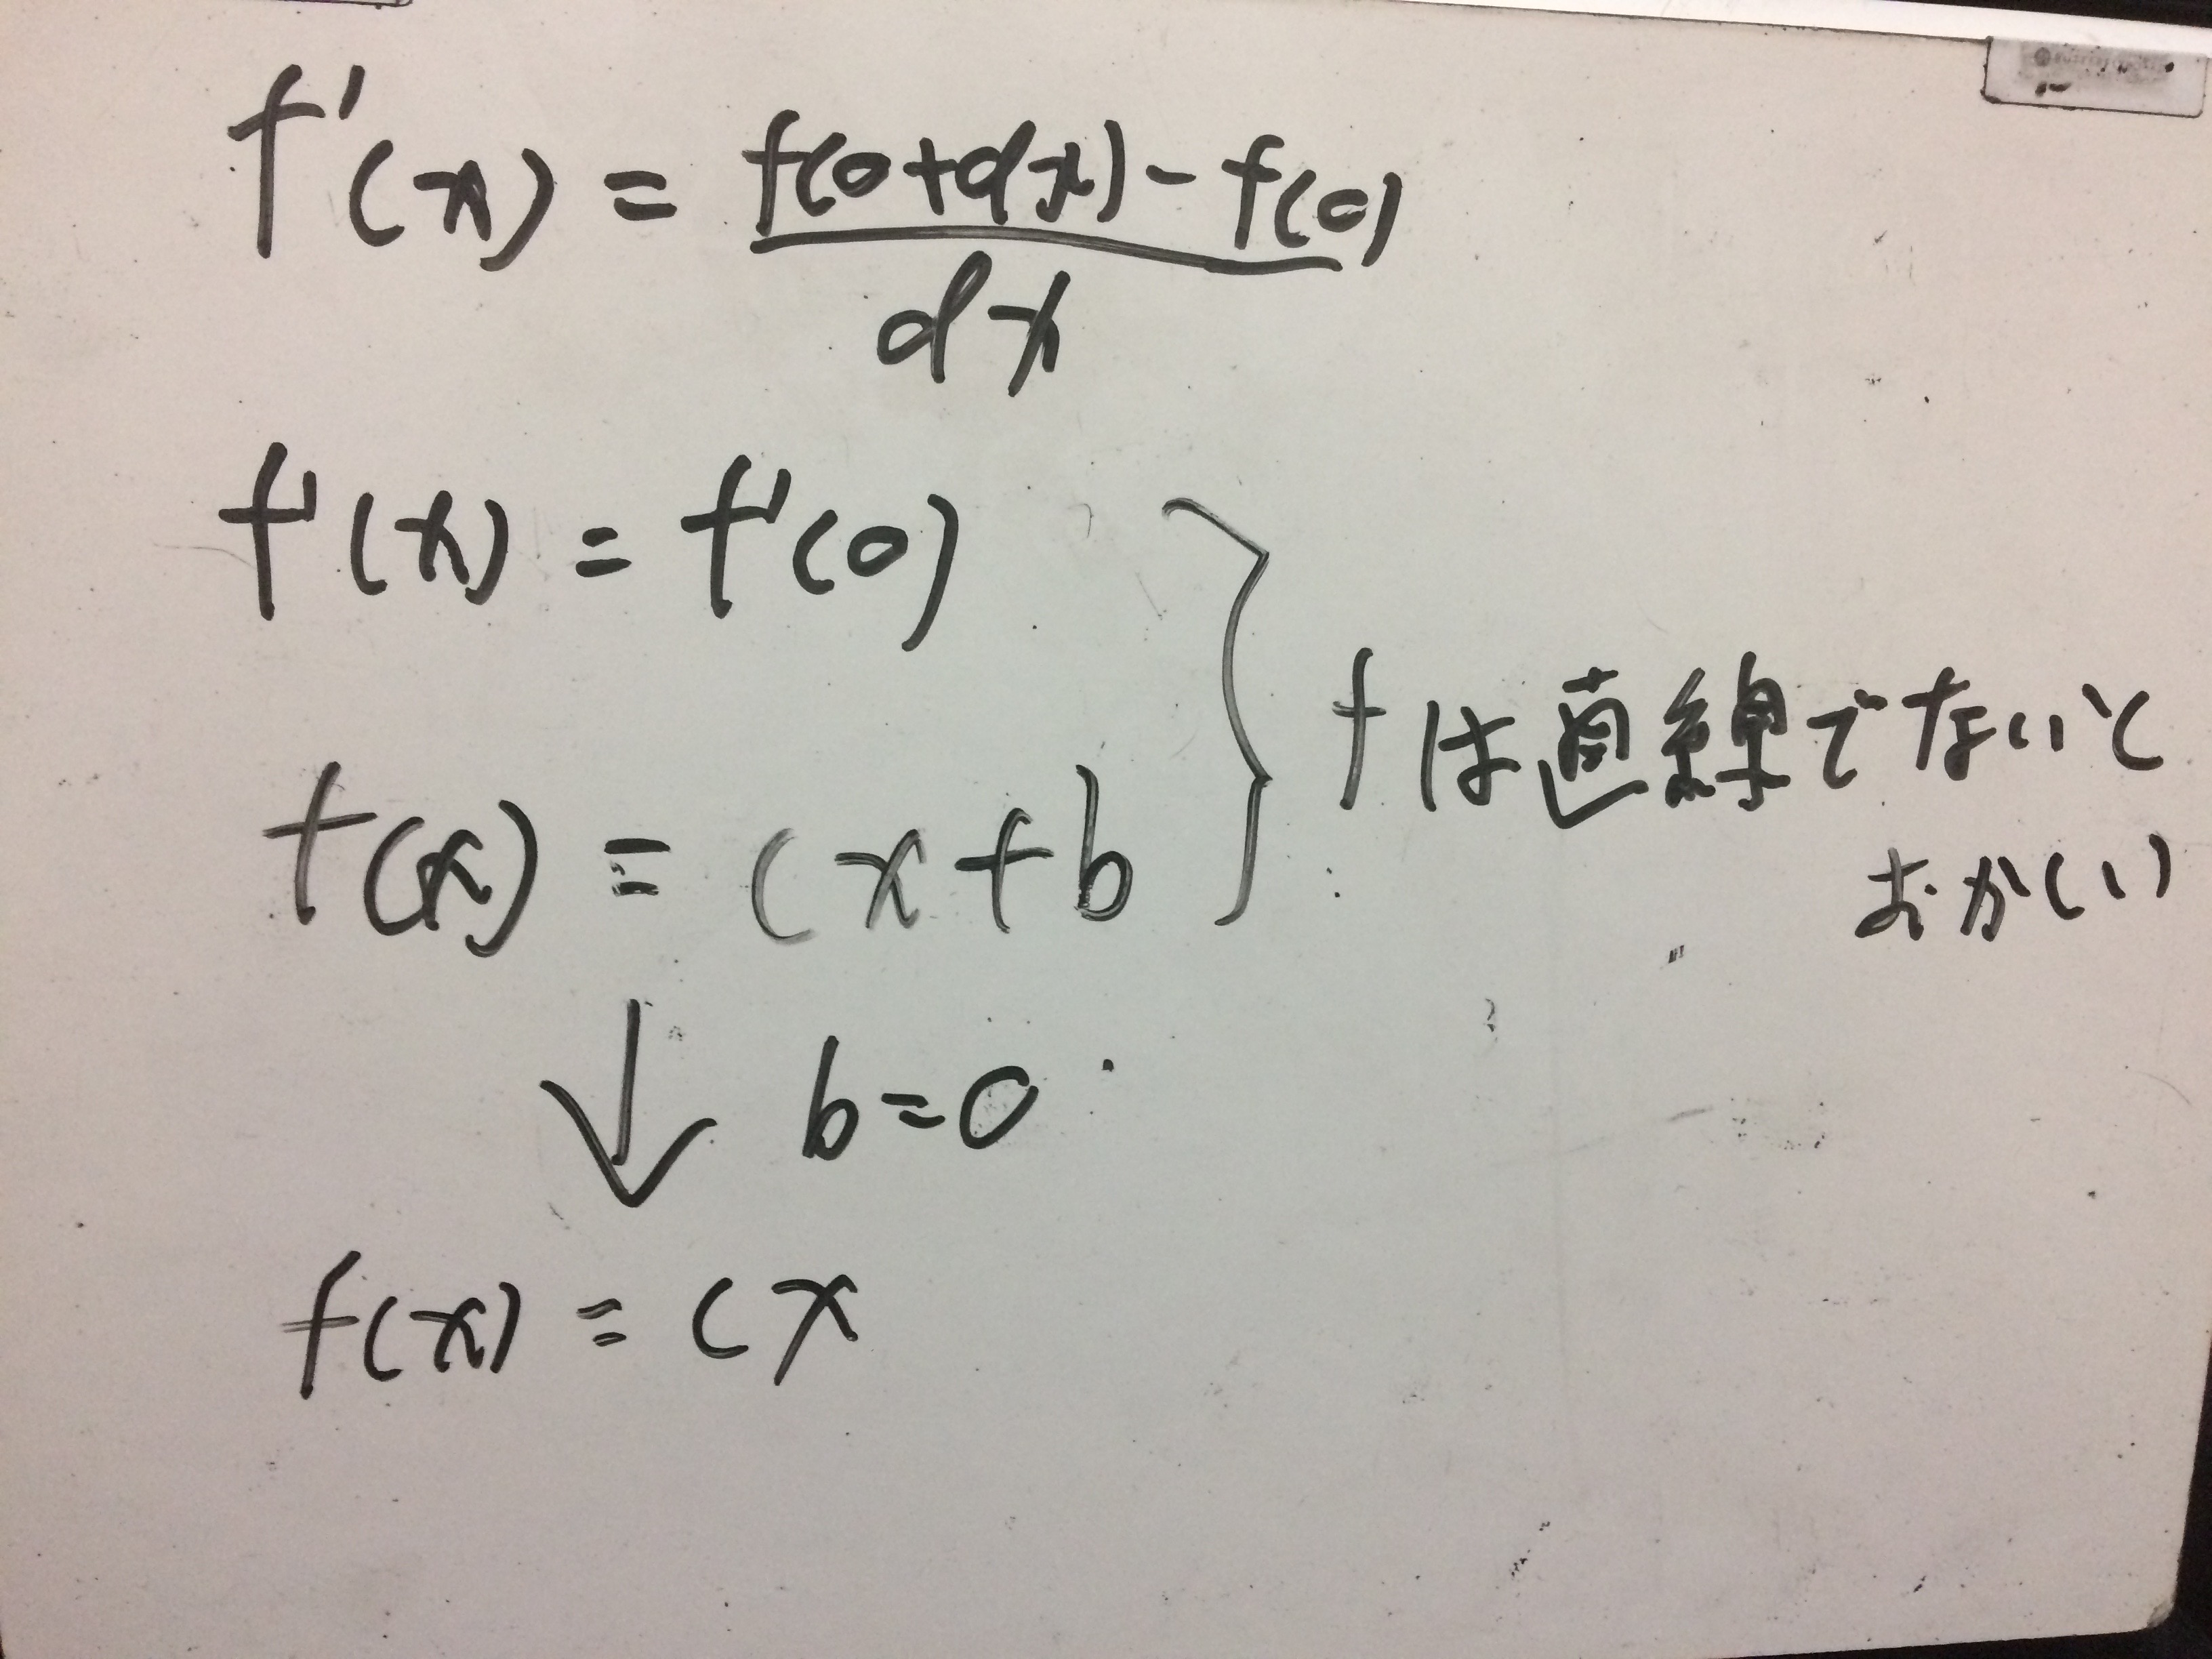 f'(x) = f(0+dx) - f(0)
dx
f'(x) = f'(0)
f(x) = cx+b
fは直線でないと
おかしい
b=0
f(x) = cx